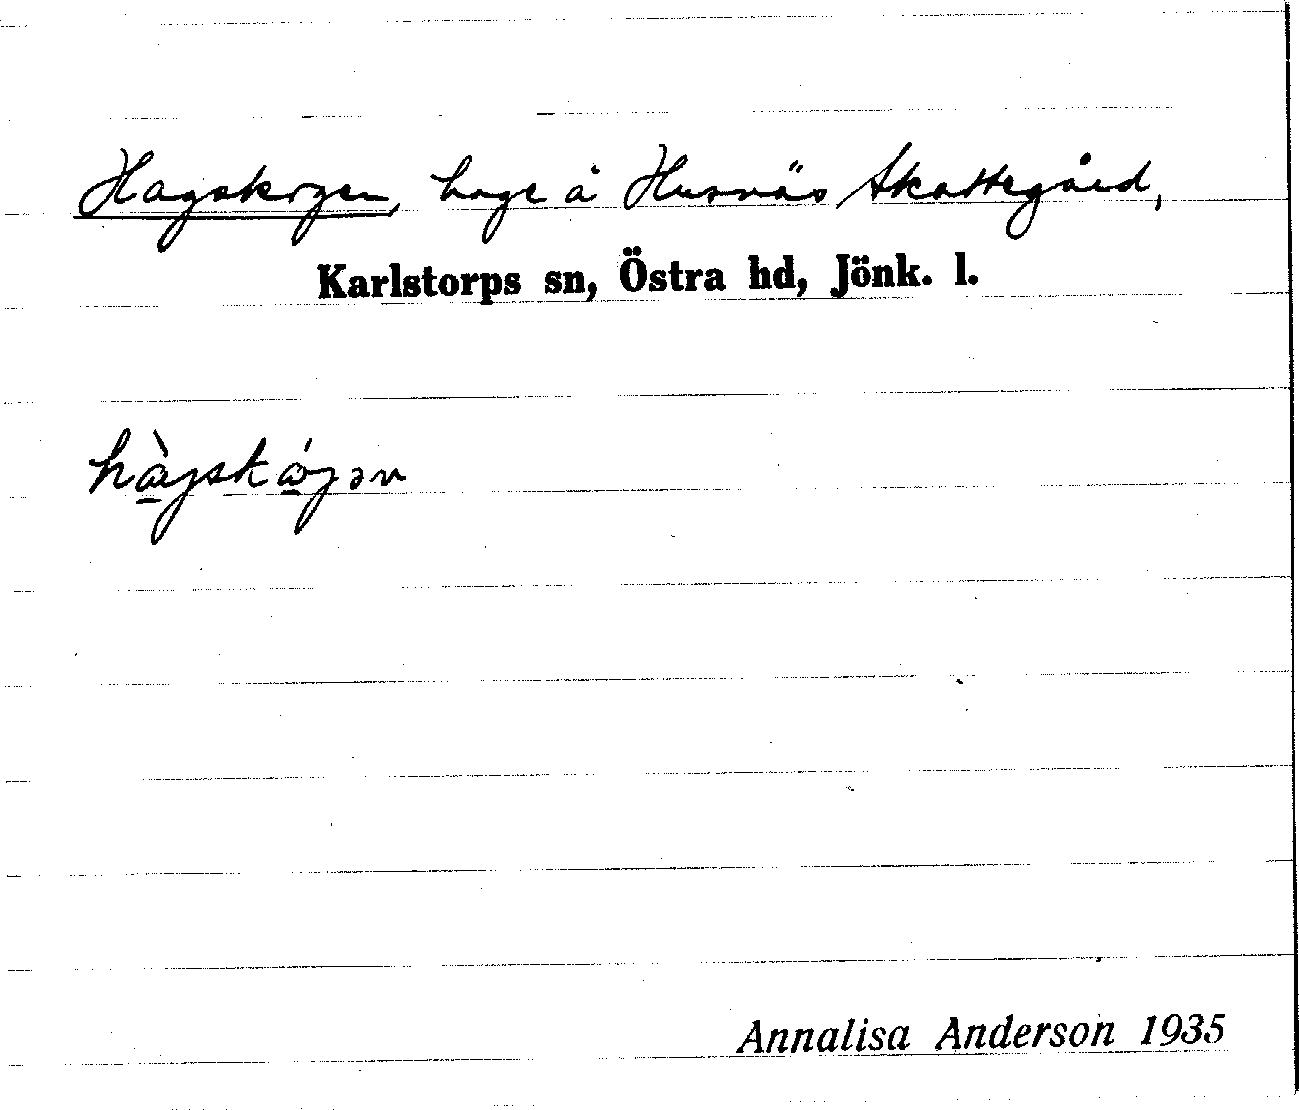 Hagskogen, hage å Husnäs Skattegård,
Karlstorps sn, Östra hd, Jönk. l.
hàgskógən
Annalisa Anderson 1935